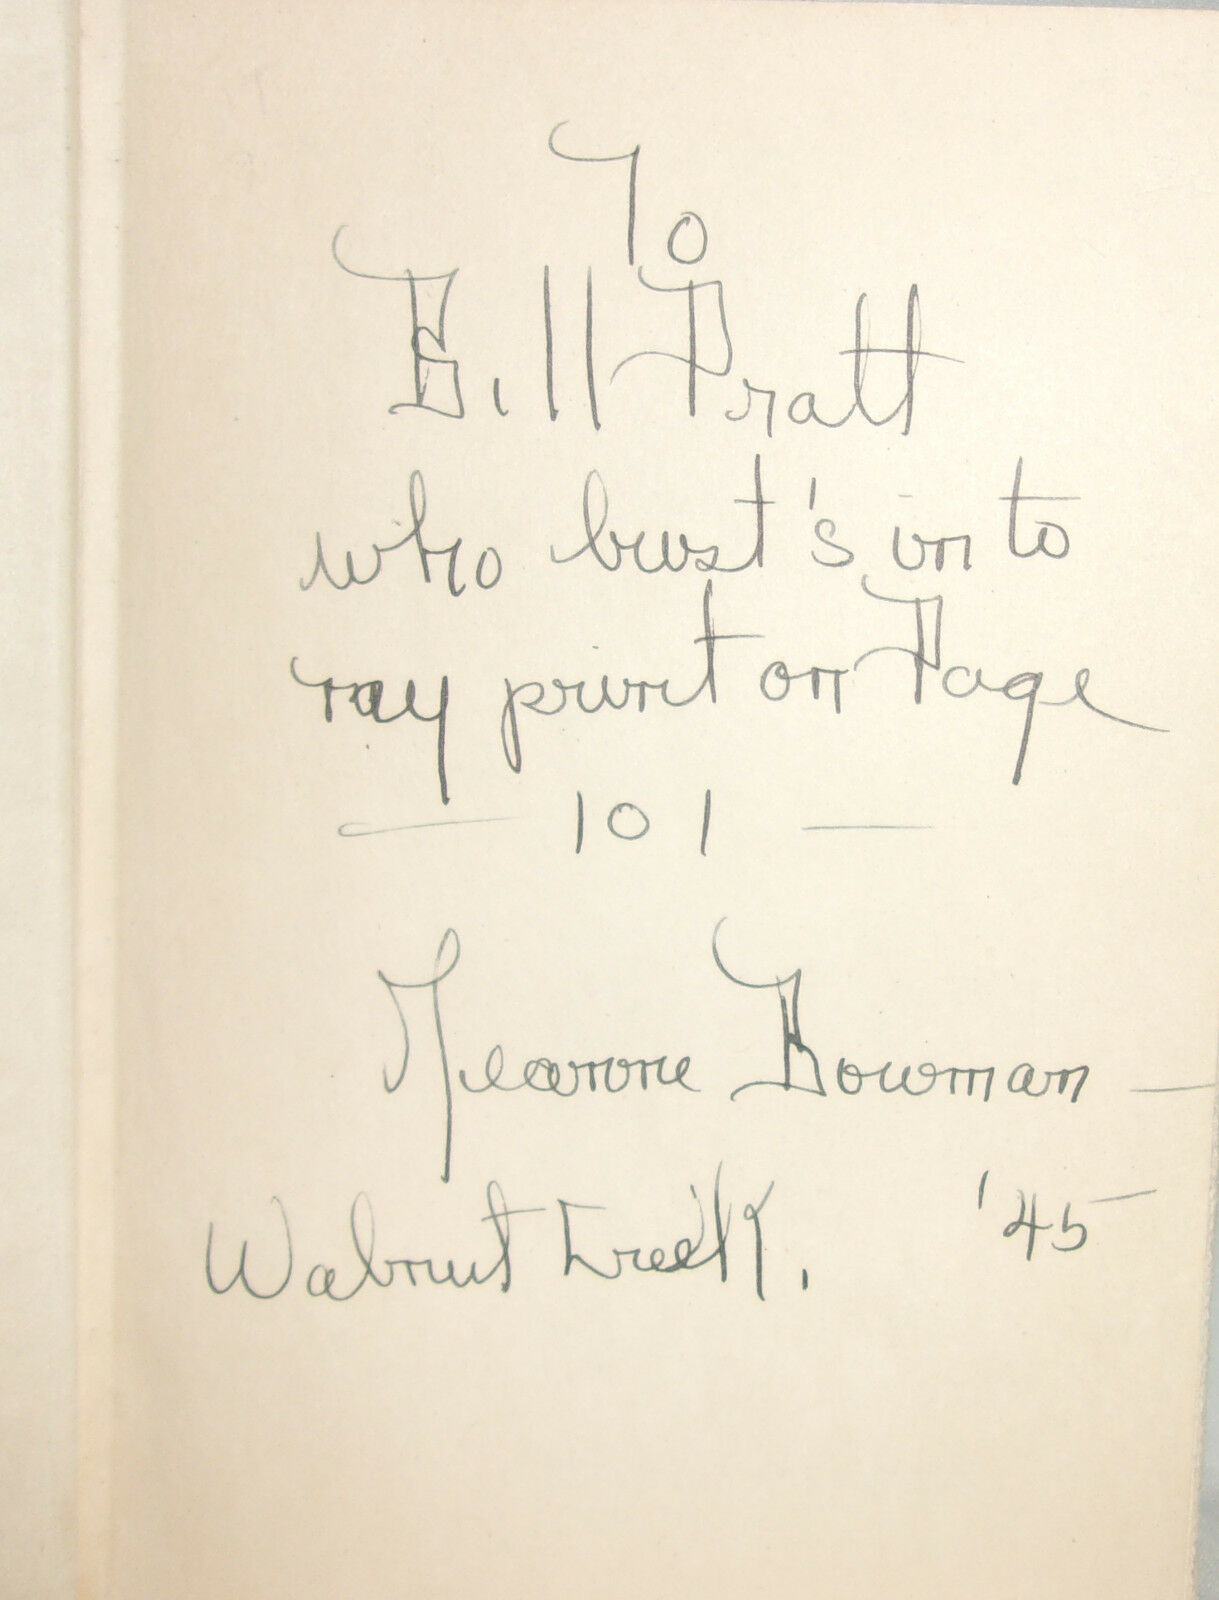 To
Bill Pratt
who bust's in to
my print on Page
— 101 —
Jeanne Bowman —
Walnut Creek. '45